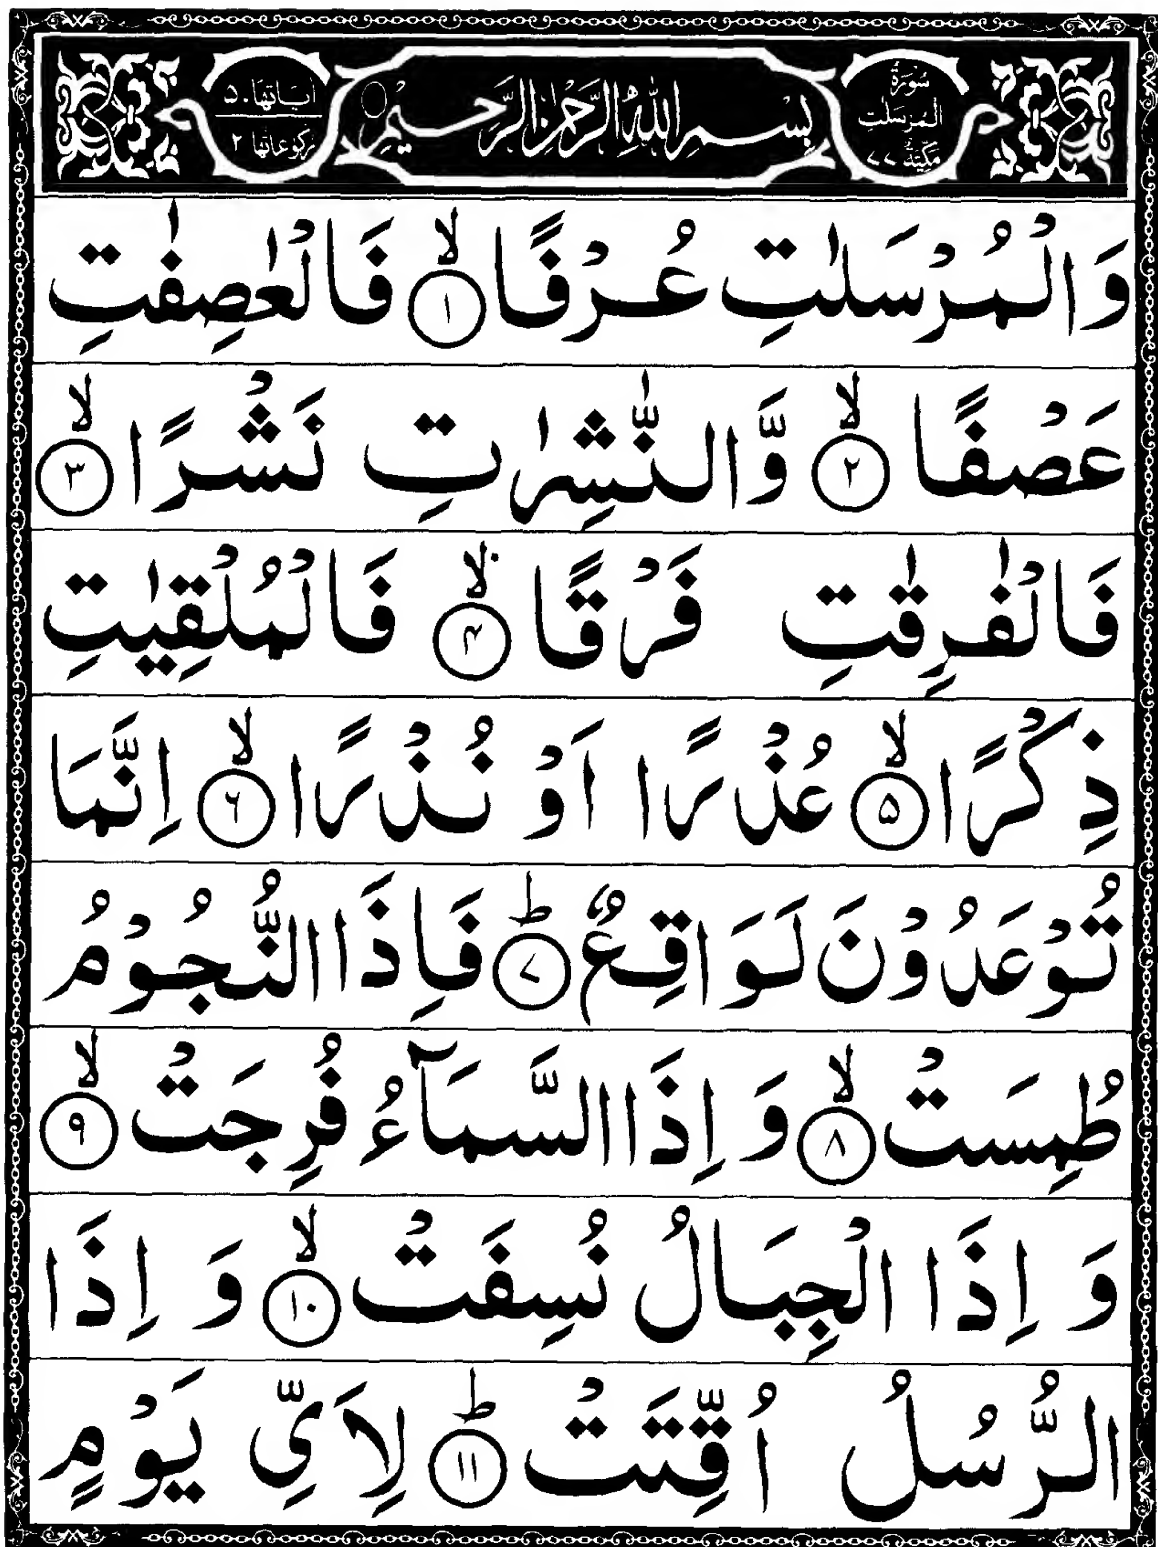 سُوْرَةُ الْمُرْسَلٰتِ مَكِّيَّةٌ ٧٧
بِسْمِ اللّٰهِ الرَّحْمٰنِ الرَّحِيْمِ
اٰيَاتُهَا ٥٠
رُكُوْعَاتُهَا ٢
وَالْمُرْسَلٰتِ عُرْفًا ۙ﴿١﴾ فَالْعٰصِفٰتِ
عَصْفًا ۙ﴿٢﴾ وَّالنّٰشِرٰتِ نَشْرًا ۙ﴿٣﴾
فَالْفٰرِقٰتِ فَرْقًا ۙ﴿۴﴾ فَالْمُلْقِيٰتِ
ذِكْرًا ۙ﴿۵﴾ عُذْرًا اَوْ نُذْرًا ۙ﴿۶﴾ اِنَّمَا
تُوْعَدُوْنَ لَوَاقِعٌ ؕ﴿٧﴾ فَاِذَا النُّجُوْمُ
طُمِسَتْ ۙ﴿٨﴾ وَ اِذَا السَّمَآءُ فُرِجَتْ ۙ﴿٩﴾
وَ اِذَا الْجِبَالُ نُسِفَتْ ۙ﴿١٠﴾ وَ اِذَا
الرُّسُلُ اُقِّتَتْ ؕ﴿١١﴾ لِاَيِّ يَوْمٍ